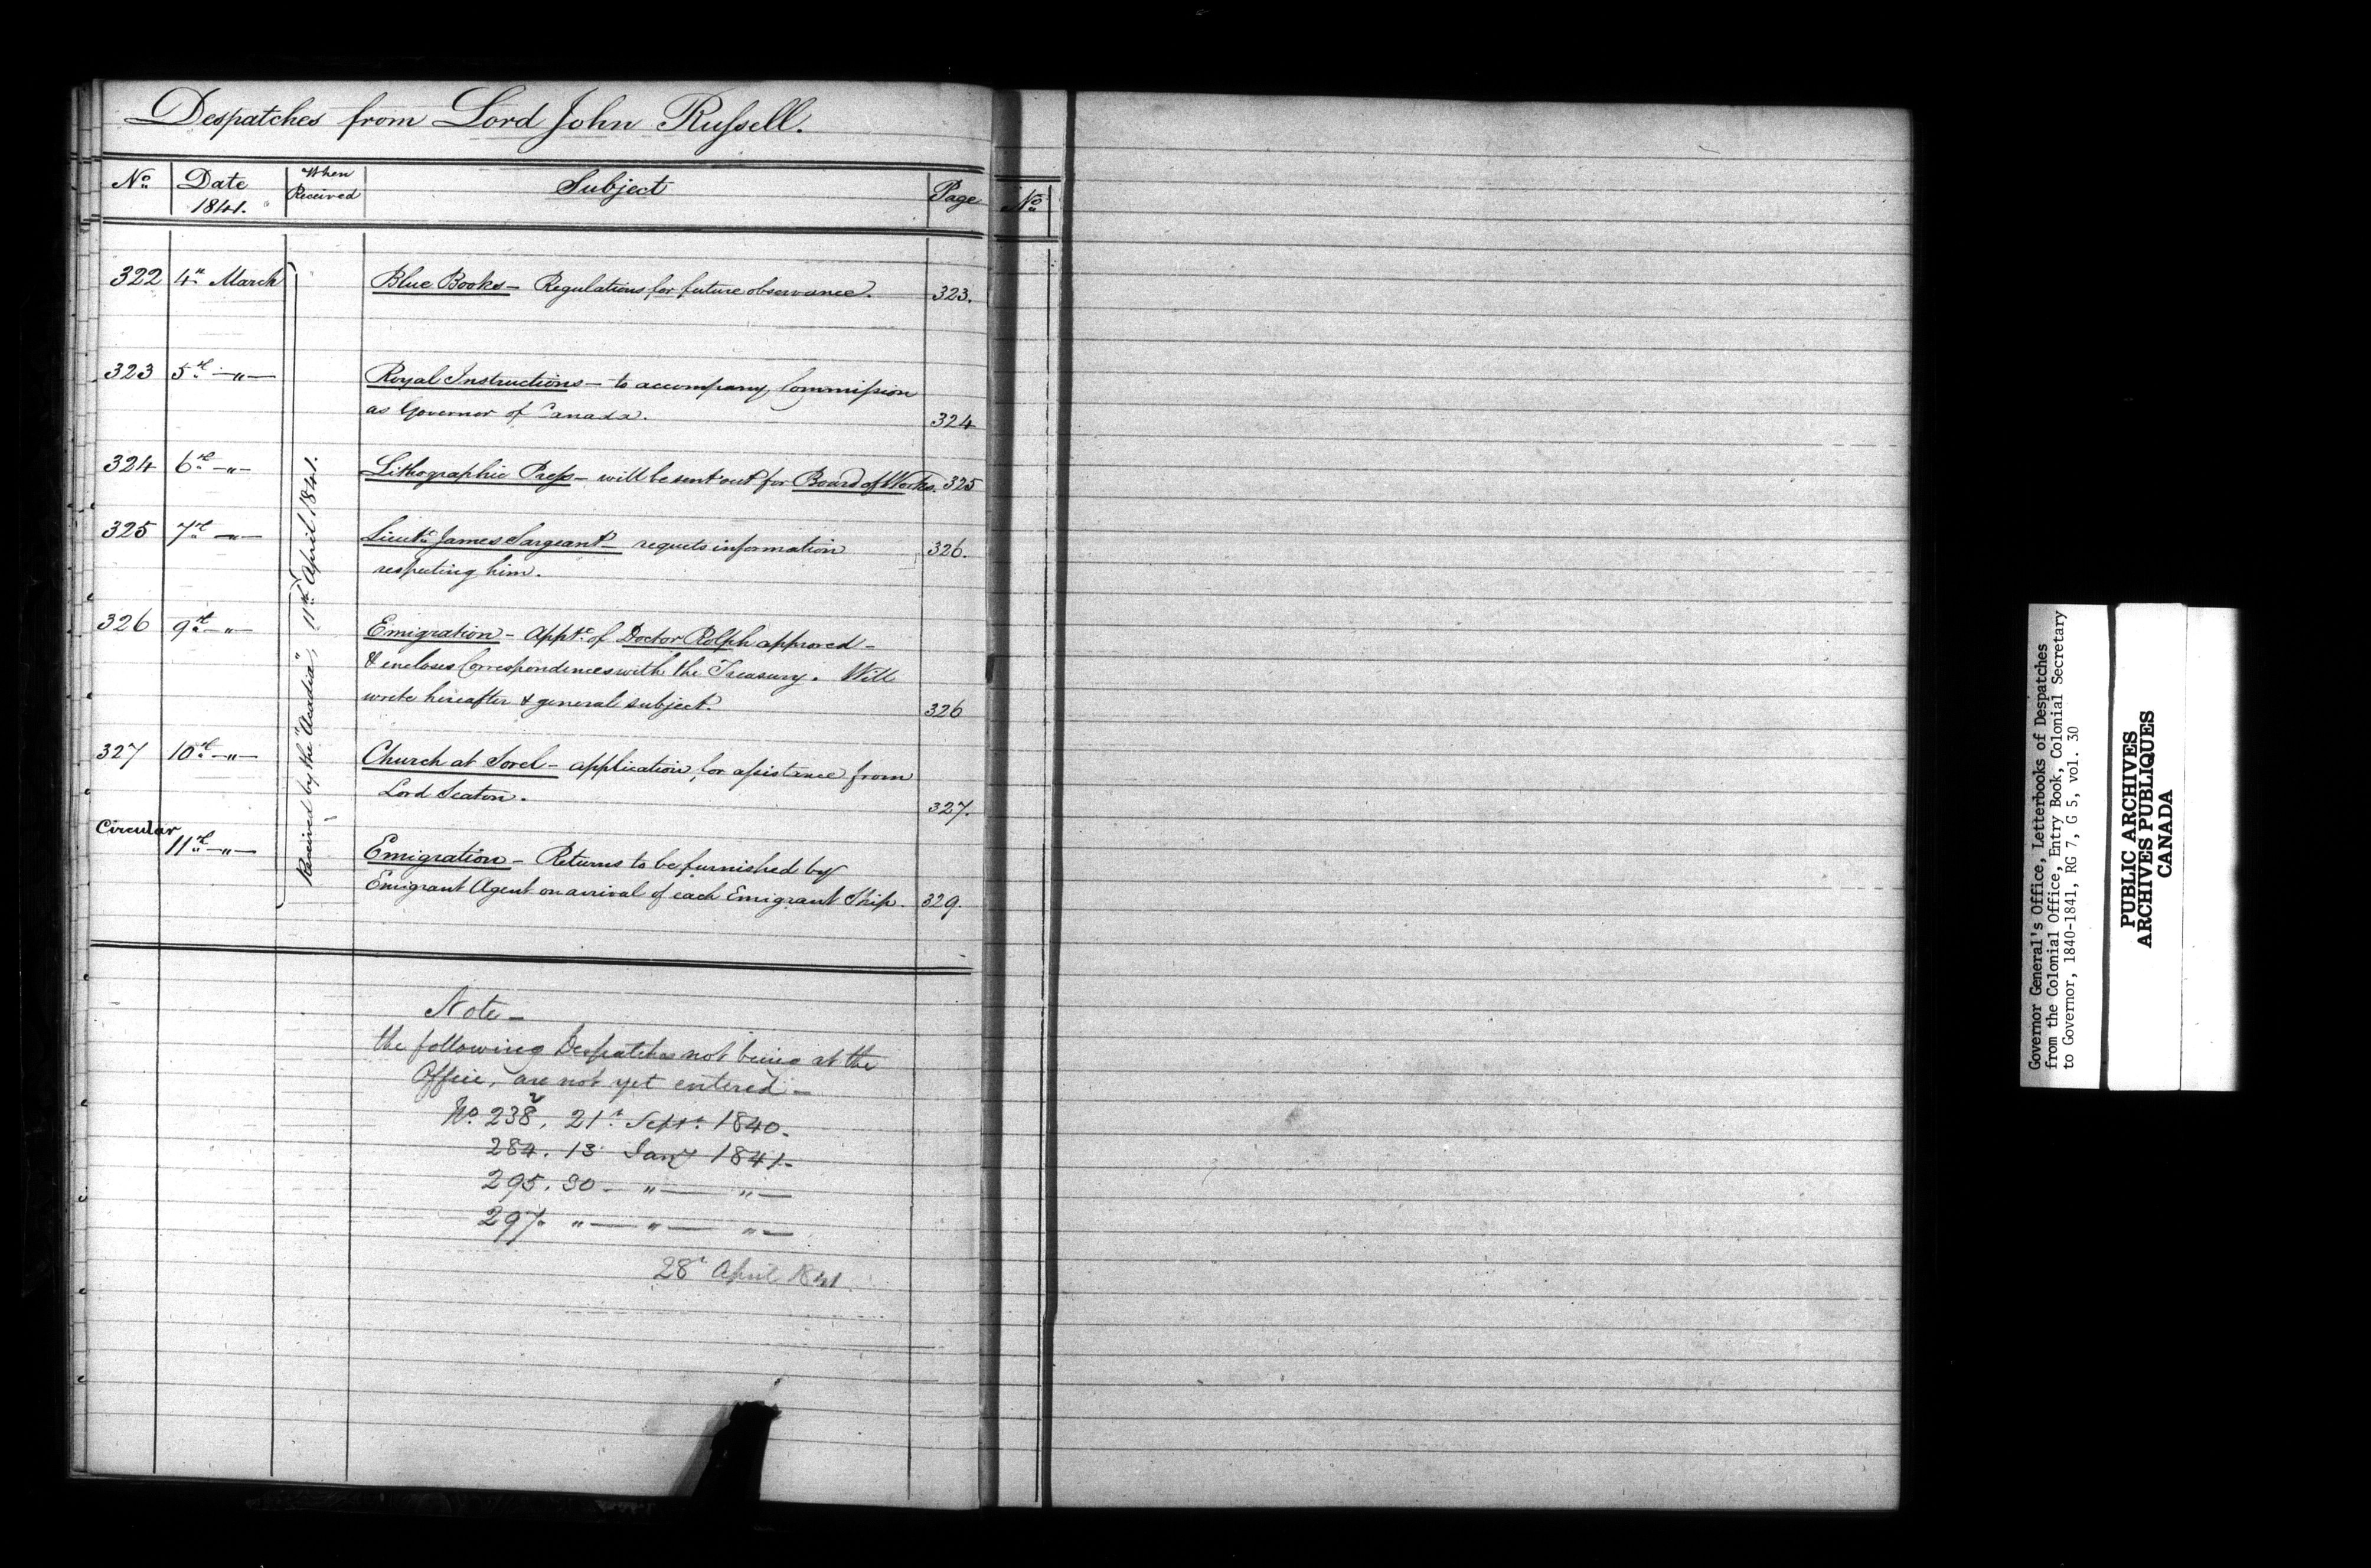 Despatches from Lord John Russell.
No. Date 1841. When Received Subject Page No.
322 4th March Blue Books - Regulations for future observance. 323.
323 5th -"- Royal Instructions - to accompany Commission
as Governor of Canada. 324
324 6th -"- Lithographic Press - will be sent out for Board of Works. 325
325 7th -"- Lieutt. James Sargeant - requets information 326.
respecting him.
326 9th -"- Emigration - Appt. of Doctor Rolph approved -
& encloses Correspondence with the Treasury. Will
write hereafter & general subject. 326
327 10th -"- Church at Sorel - application for assistance from
Lord Seaton. 327.
Circular
11th -"- Emigration - Returns to be furnished by
Emigrant Agent on arrival of each Emigrant Ship. 329.
Received by the "Acadia", 11th April 1841.
Note -
the following Despatches not being at the
Office, are not yet entered -
No. 238, 21st Septr. 1840.
284. 13 Jany 1841.
295. 30 - " - " -
297. " - " - " -
28th April 1841
Governor General's Office, Letterbooks of Despatches
from the Colonial Office, Entry Book, Colonial Secretary
to Governor, 1840-1841, RG 7, G 5, vol. 30
PUBLIC ARCHIVES
ARCHIVES PUBLIQUES
CANADA